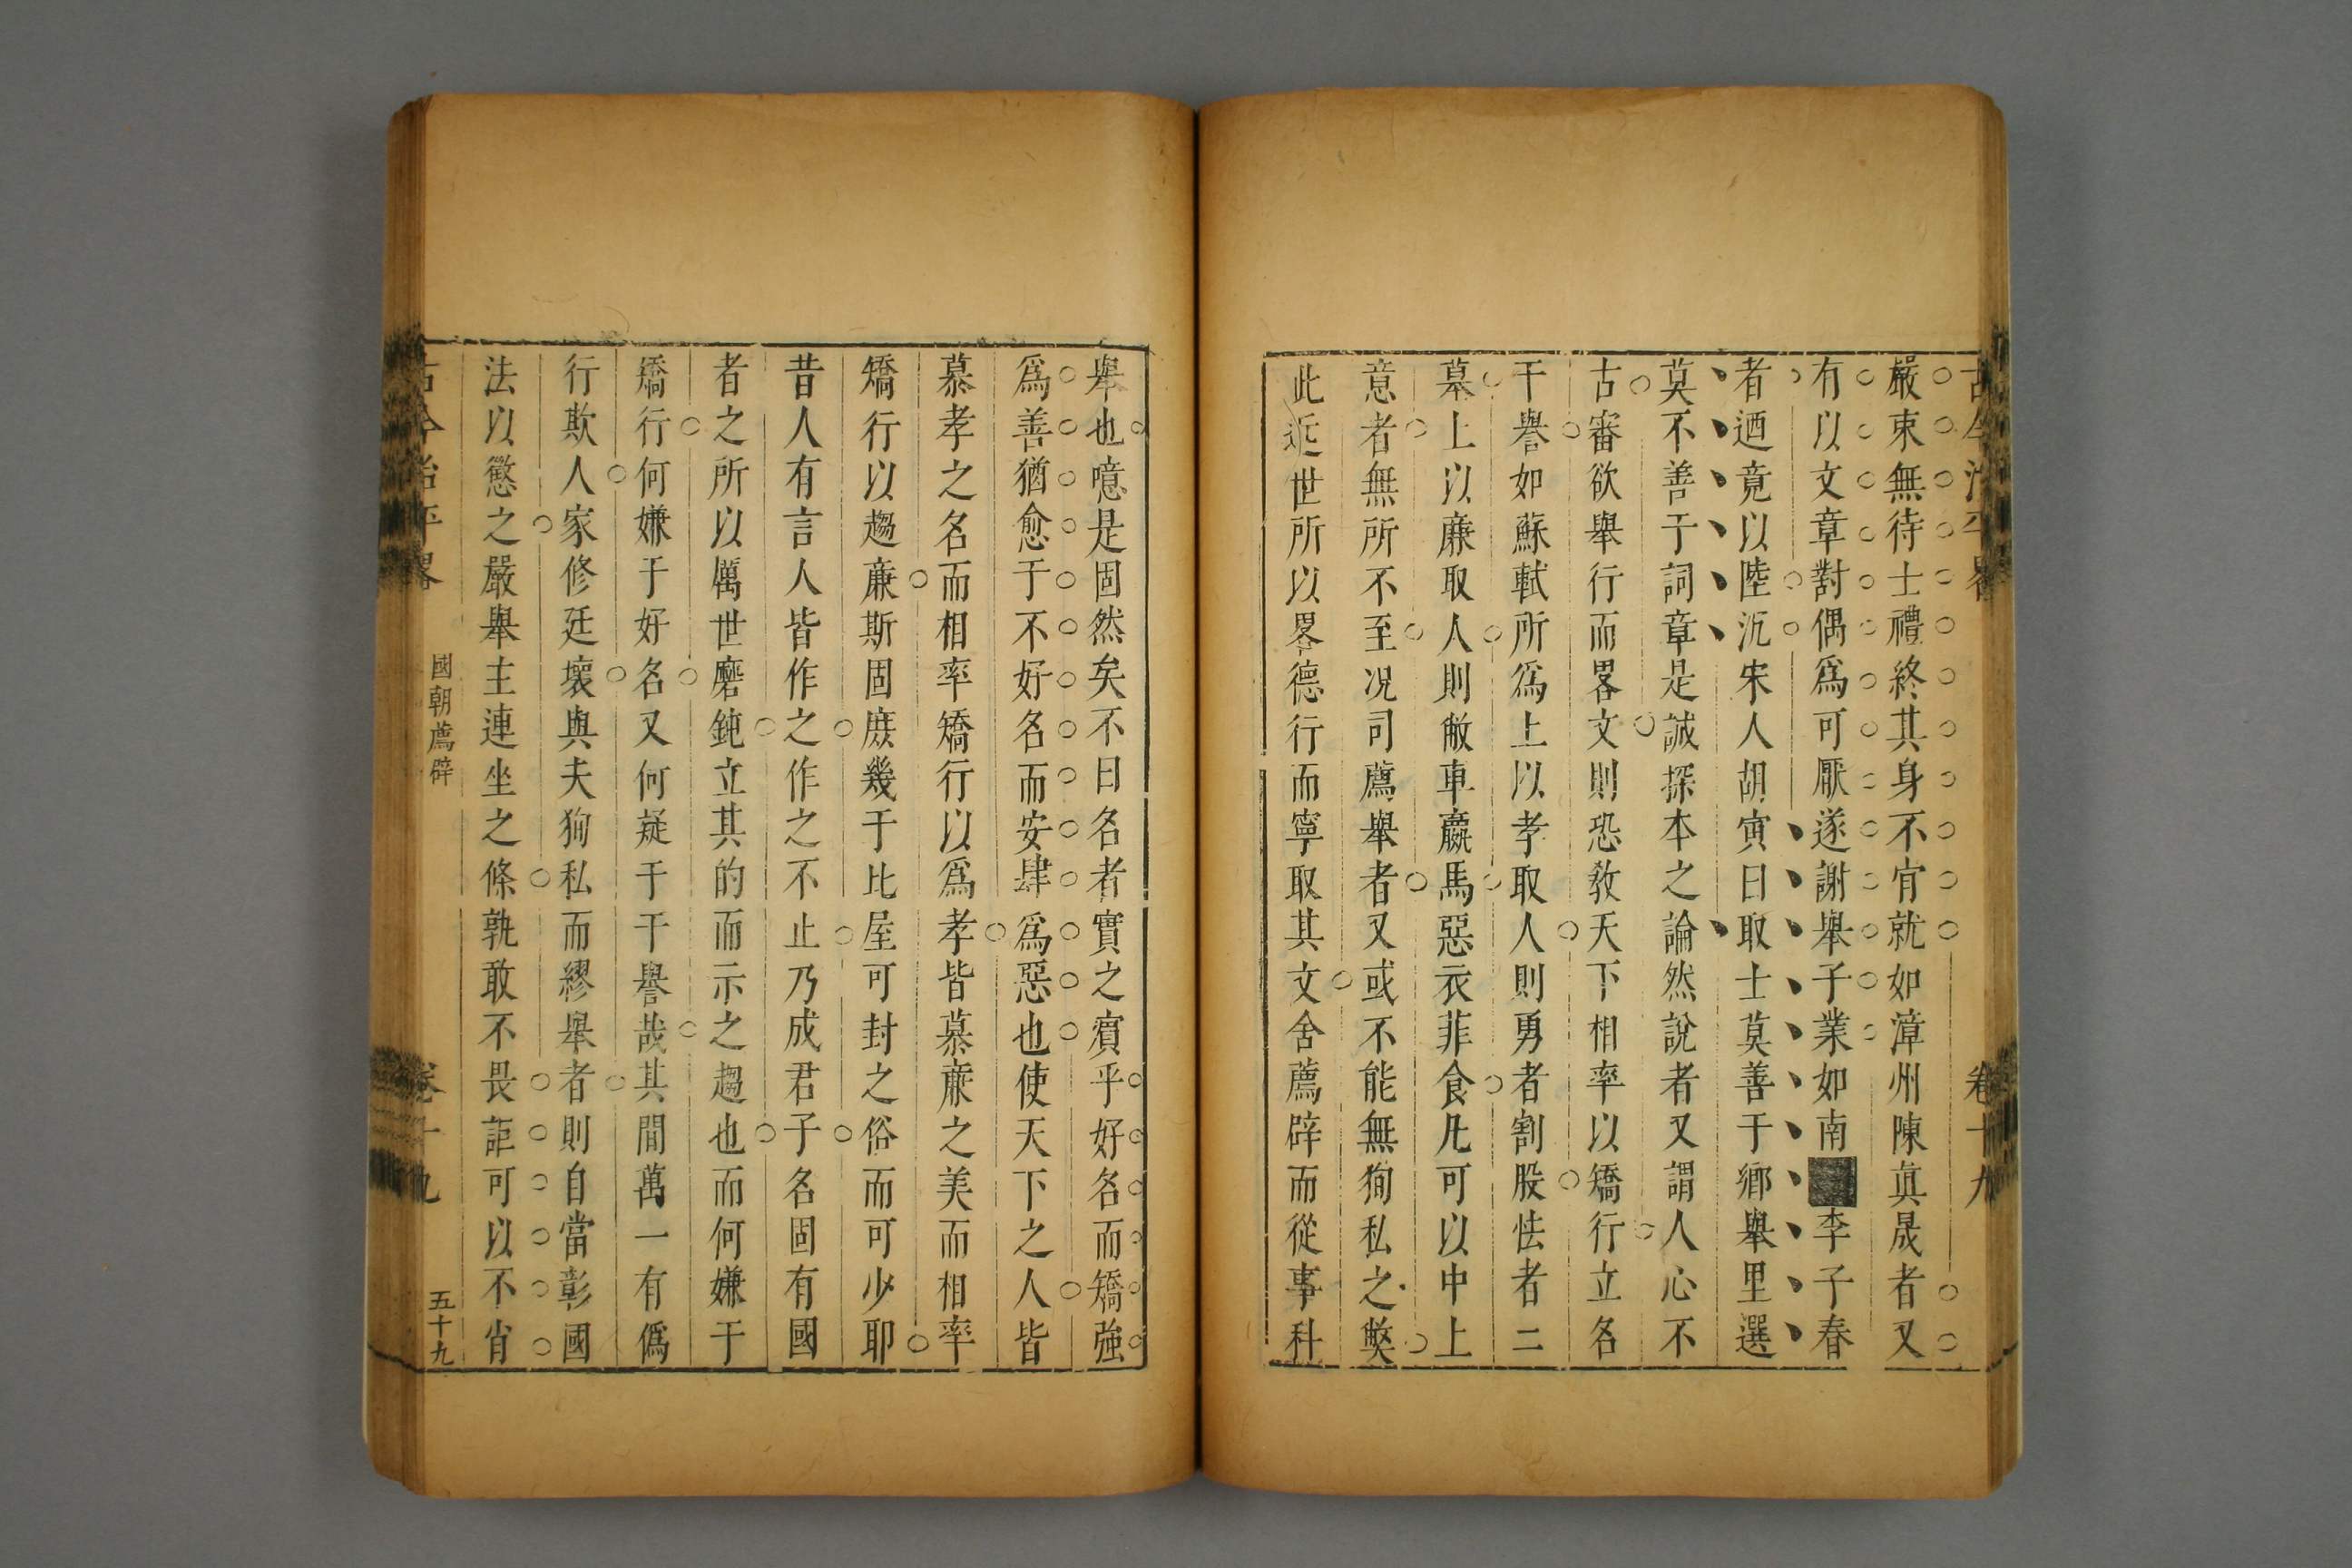 嚴束無待士禮終其身不肎就如漳州陳眞晟者又
有以文章對偶爲可厭遂謝舉子業如南李子春
者迺竟以陸沉宋人胡寅曰取士莫善于鄉舉里選
莫不善于詞章是誠探本之論然說者又謂人心不
古審欲舉行而畧文則恐敎天下相率以矯行立名
干譽如蘇軾所爲上以孝取人則勇者割股怯者二
墓上以廉取人則敝車羸馬惡衣菲食凢可以中上
意者無所不至况司薦舉者又或不能無狥私之獘
此近世所以畧德行而寧取其文舍薦辟而從事科
舉也噫是固然矣不曰名者實之賔乎好名而矯強
爲善猶愈于不好名而安肆爲惡也使天下之人皆
慕孝之名而相率矯行以爲孝皆慕廉之美而相率
矯行以趨廉斯固庶幾于比屋可封之俗而可少耶
昔人有言人皆作之作之不止乃成君子名固有國
者之所以厲世磨鈍立其的而示之趨也而何嫌于
矯行何嫌于好名又何疑于干譽哉其間萬一有僞
行欺人家修廷壞與夫狥私而繆舉者則自當彰國
法以懲之嚴舉主連坐之條孰敢不畏詎可以不肖
古今治平畧
國朝薦辟
卷十九
五十九